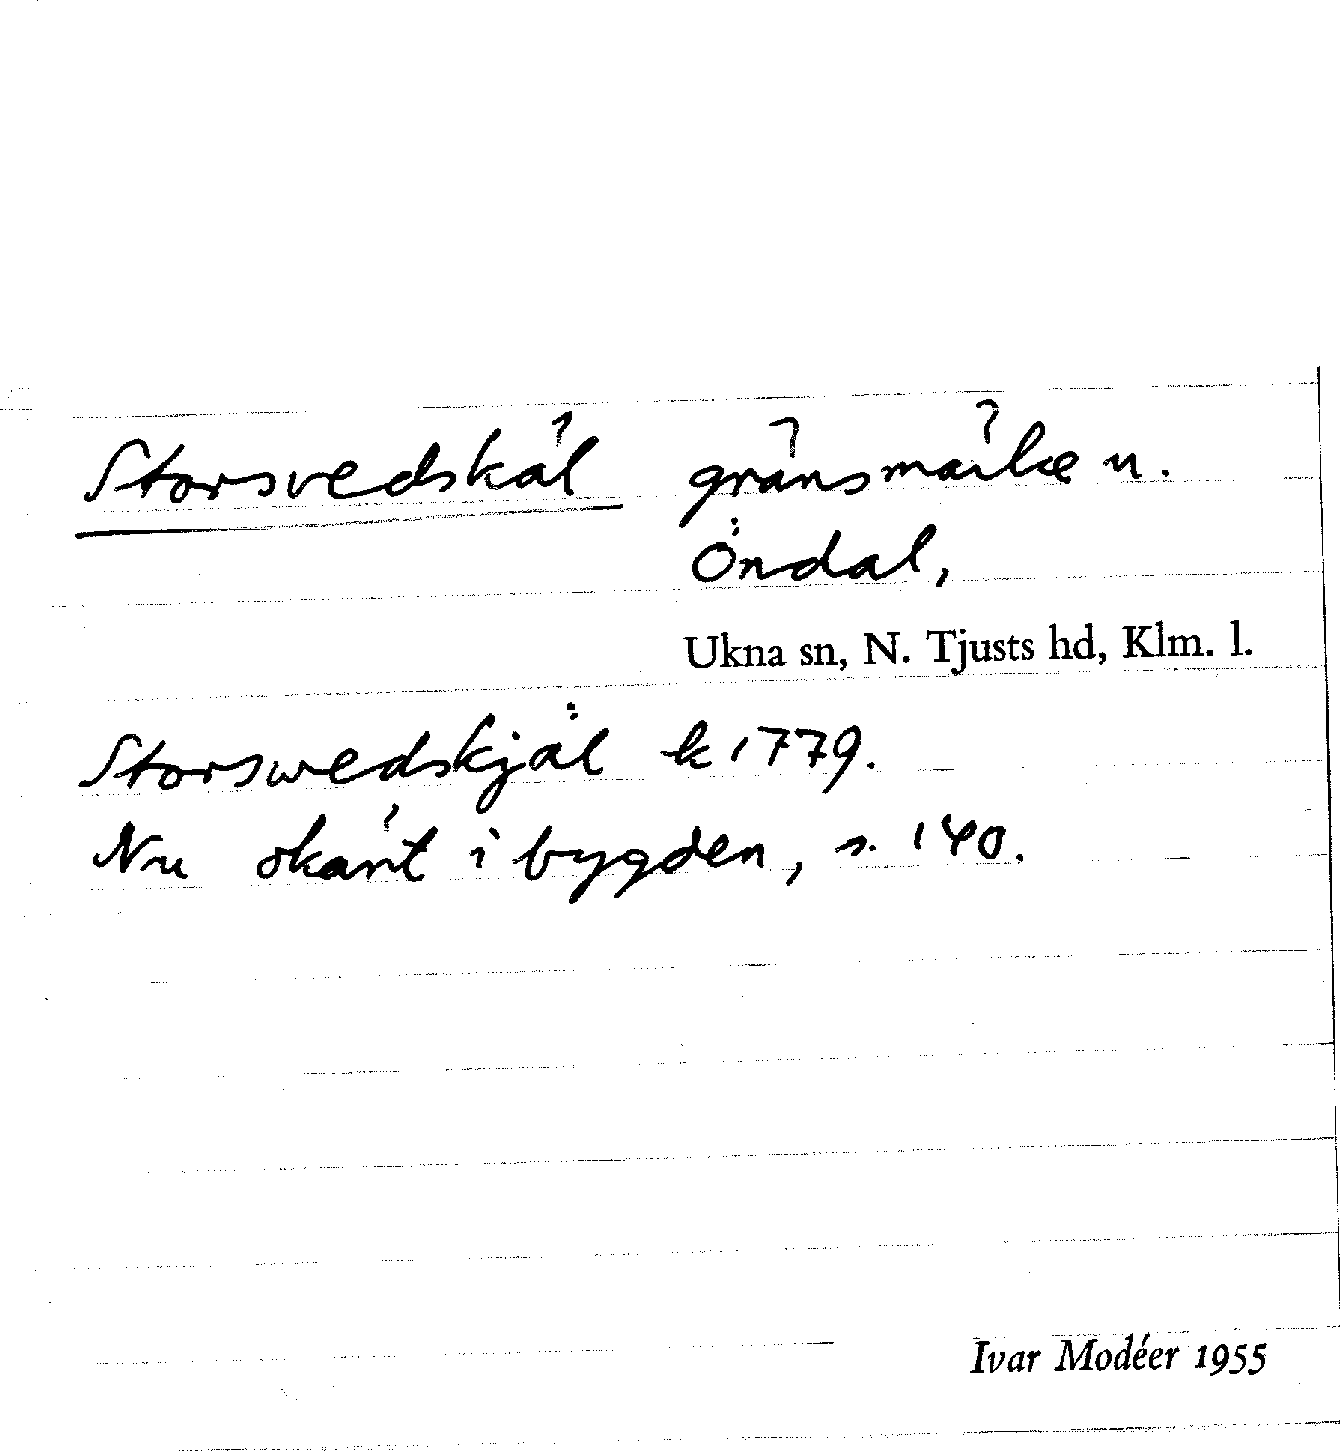 Storsvedskäl gränsmärke u.
Öndal,
Ukna sn, N. Tjusts hd, Klm. l.
Storswedskjäl k 1779.
Nu okänt i bygden, s. 140.
Ivar Modéer 1955